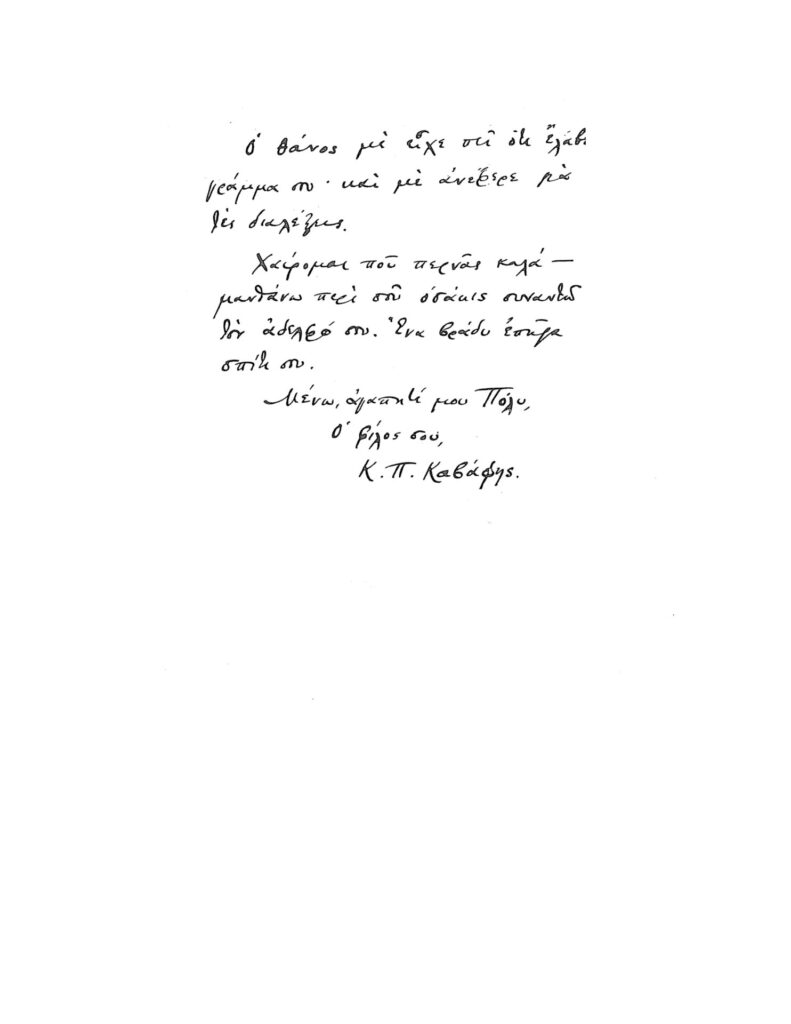 Ὁ Θάνος μὲ εἶχε πεῖ ὅτι ἔλαβε
γράμμα σου · καὶ μὲ ἀνέφερε γιὰ
τὲς διαλέξεις.
Χαίρομαι ποῦ περνᾶς καλά —
μανθάνω περὶ σοῦ ὁσάκις συναντῶ
τὸν ἀδελφό σου. Ἕνα βράδυ ἐπῆγα
σπίτι σου.
Μένω, ἀγαπητέ μου Πόλυ,
Ὁ φίλος σου,
Κ. Π. Καβάφης.